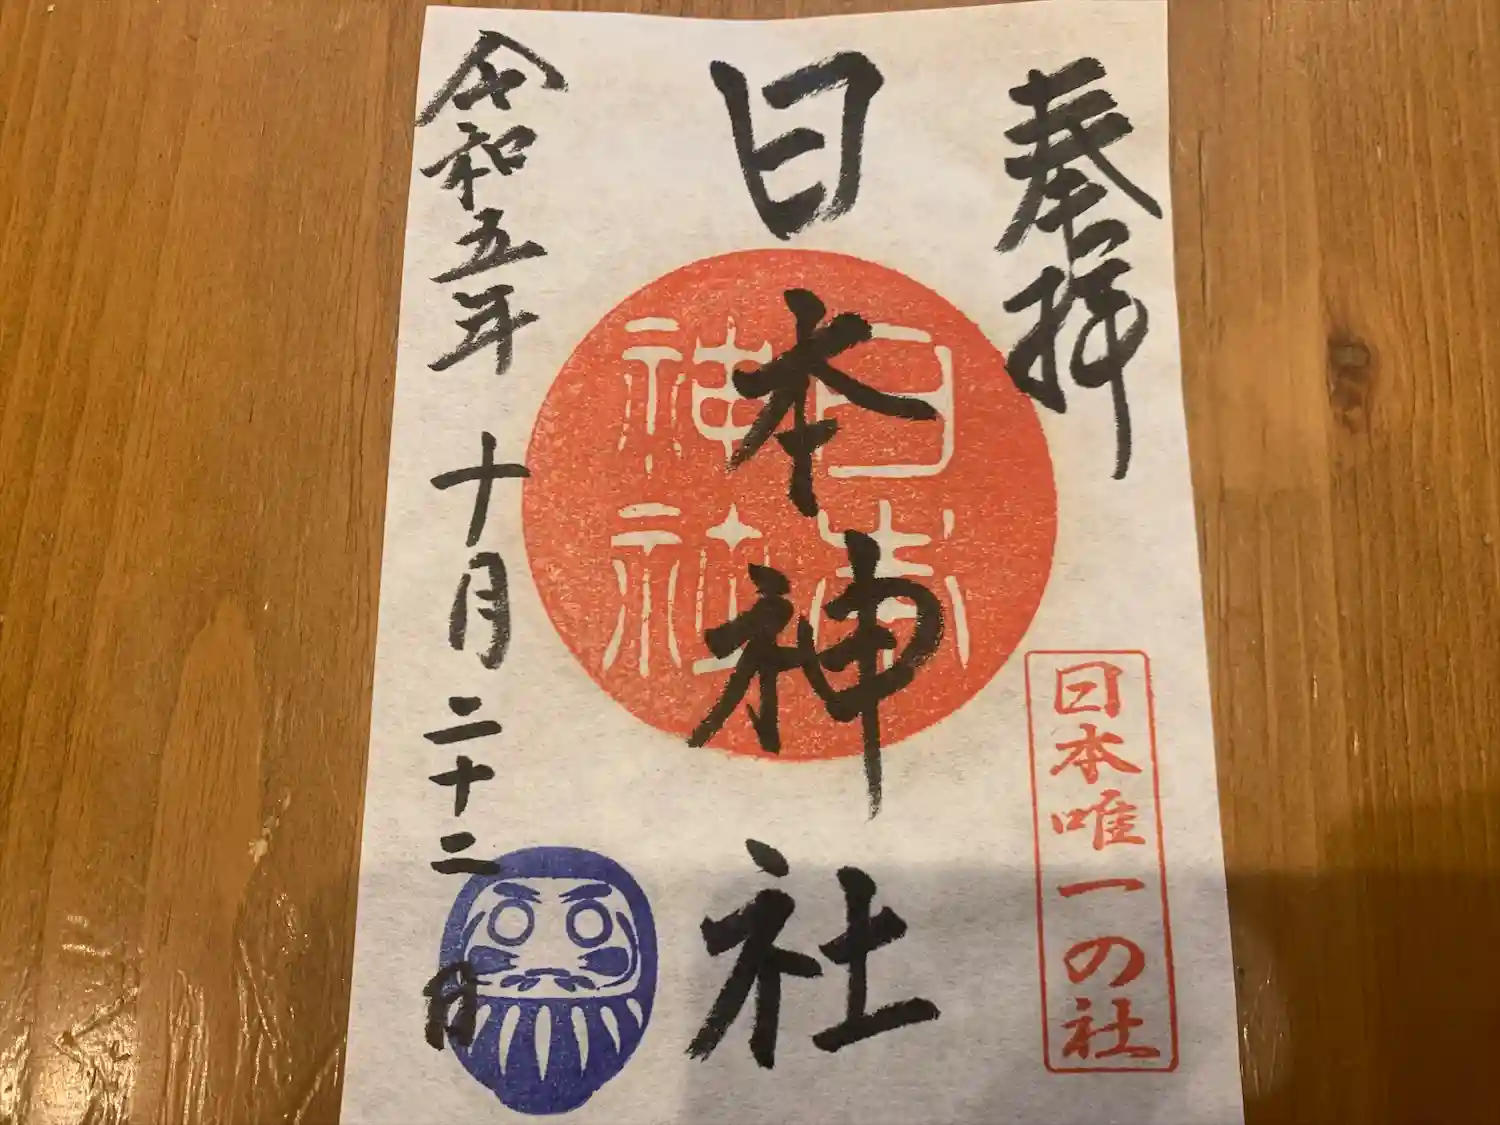 奉拝
日本唯一の社
日本神社
日本神社
令和五年 十月 二十二日